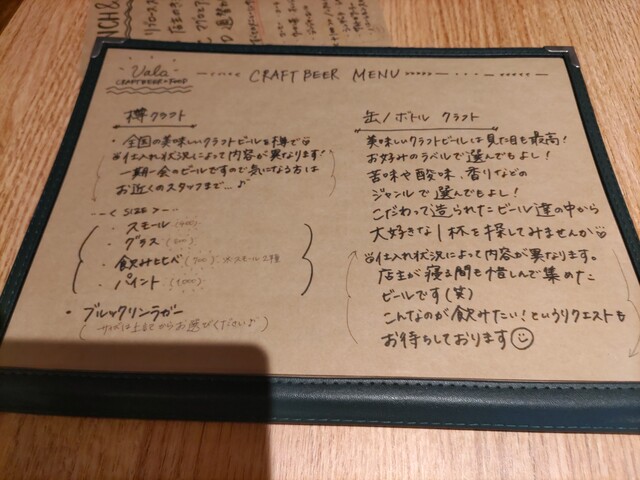 Vala
CRAFTBEER & FOOD
CRAFT BEER MENU
樽クラフト
・全国の美味しいクラフトビールを樽で
※仕入れ状況によって内容が異なります!
一期一会のビールですので気になる方は
お近くのスタッフまで…♪
--< SIZE >--
・スモール
・グラス
・飲み比べ
・パイント
・ブルックリンラガー
缶/ボトル クラフト
美味しいクラフトビールは見た目も最高!
お好みのラベルで選んでもよし!
苦味や酸味、香りなどの
ジャンルで選んでもよし!
こだわって造られたビール達の中から
大好きな1杯を探してみませんか
※仕入れ状況によって内容が異なります。
店主が寝る間も惜しんで集めた
ビールです(笑)
こんなのが飲みたい!というリクエストも
お待ちしております